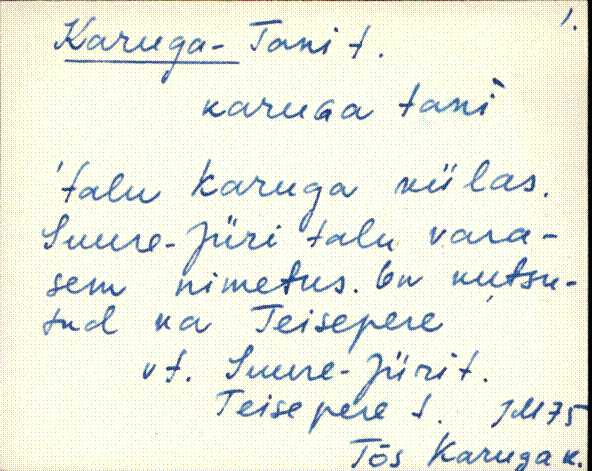 1.
Karuga-Tani t.
karuGa tani
'talu Karuga külas.
Suure-Jüri talu vara-
sem nimetus. On kutsu-
tud ka Teisepere
vt. Suure-Jüri t.
Teisepere t. JM75
Tõs Karuga k.